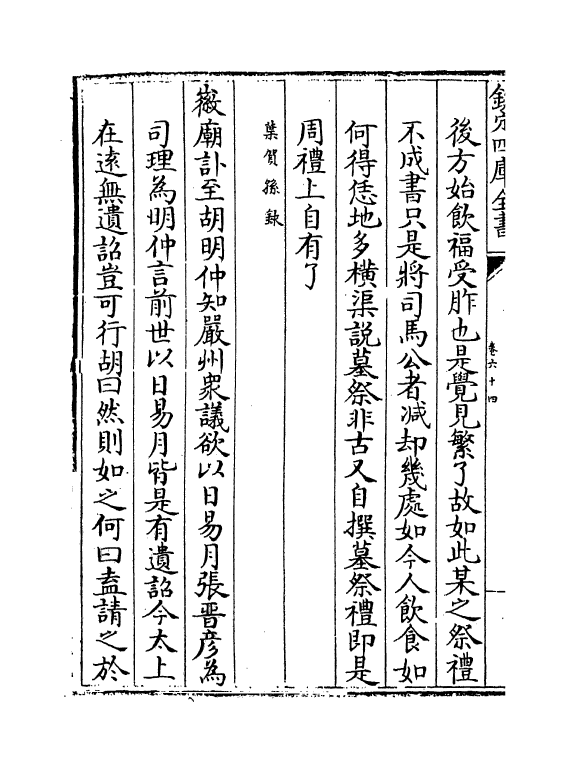 欽定四庫全書
卷六十四
後方始飲福受胙也是覺見繁了故如此某之祭禮
不成書只是將司馬公者減却幾處如今人飲食如
何得恁地多橫渠説墓祭非古又自撰墓祭禮即是
周禮上自有了
葉賀孫録
徽廟訃至胡明仲知嚴州衆議欲以日易月張晋彦為
司理為明仲言前世以日易月皆是有遺詔今太上
在逺無遺詔豈可行胡曰然則如之何曰盍請之於